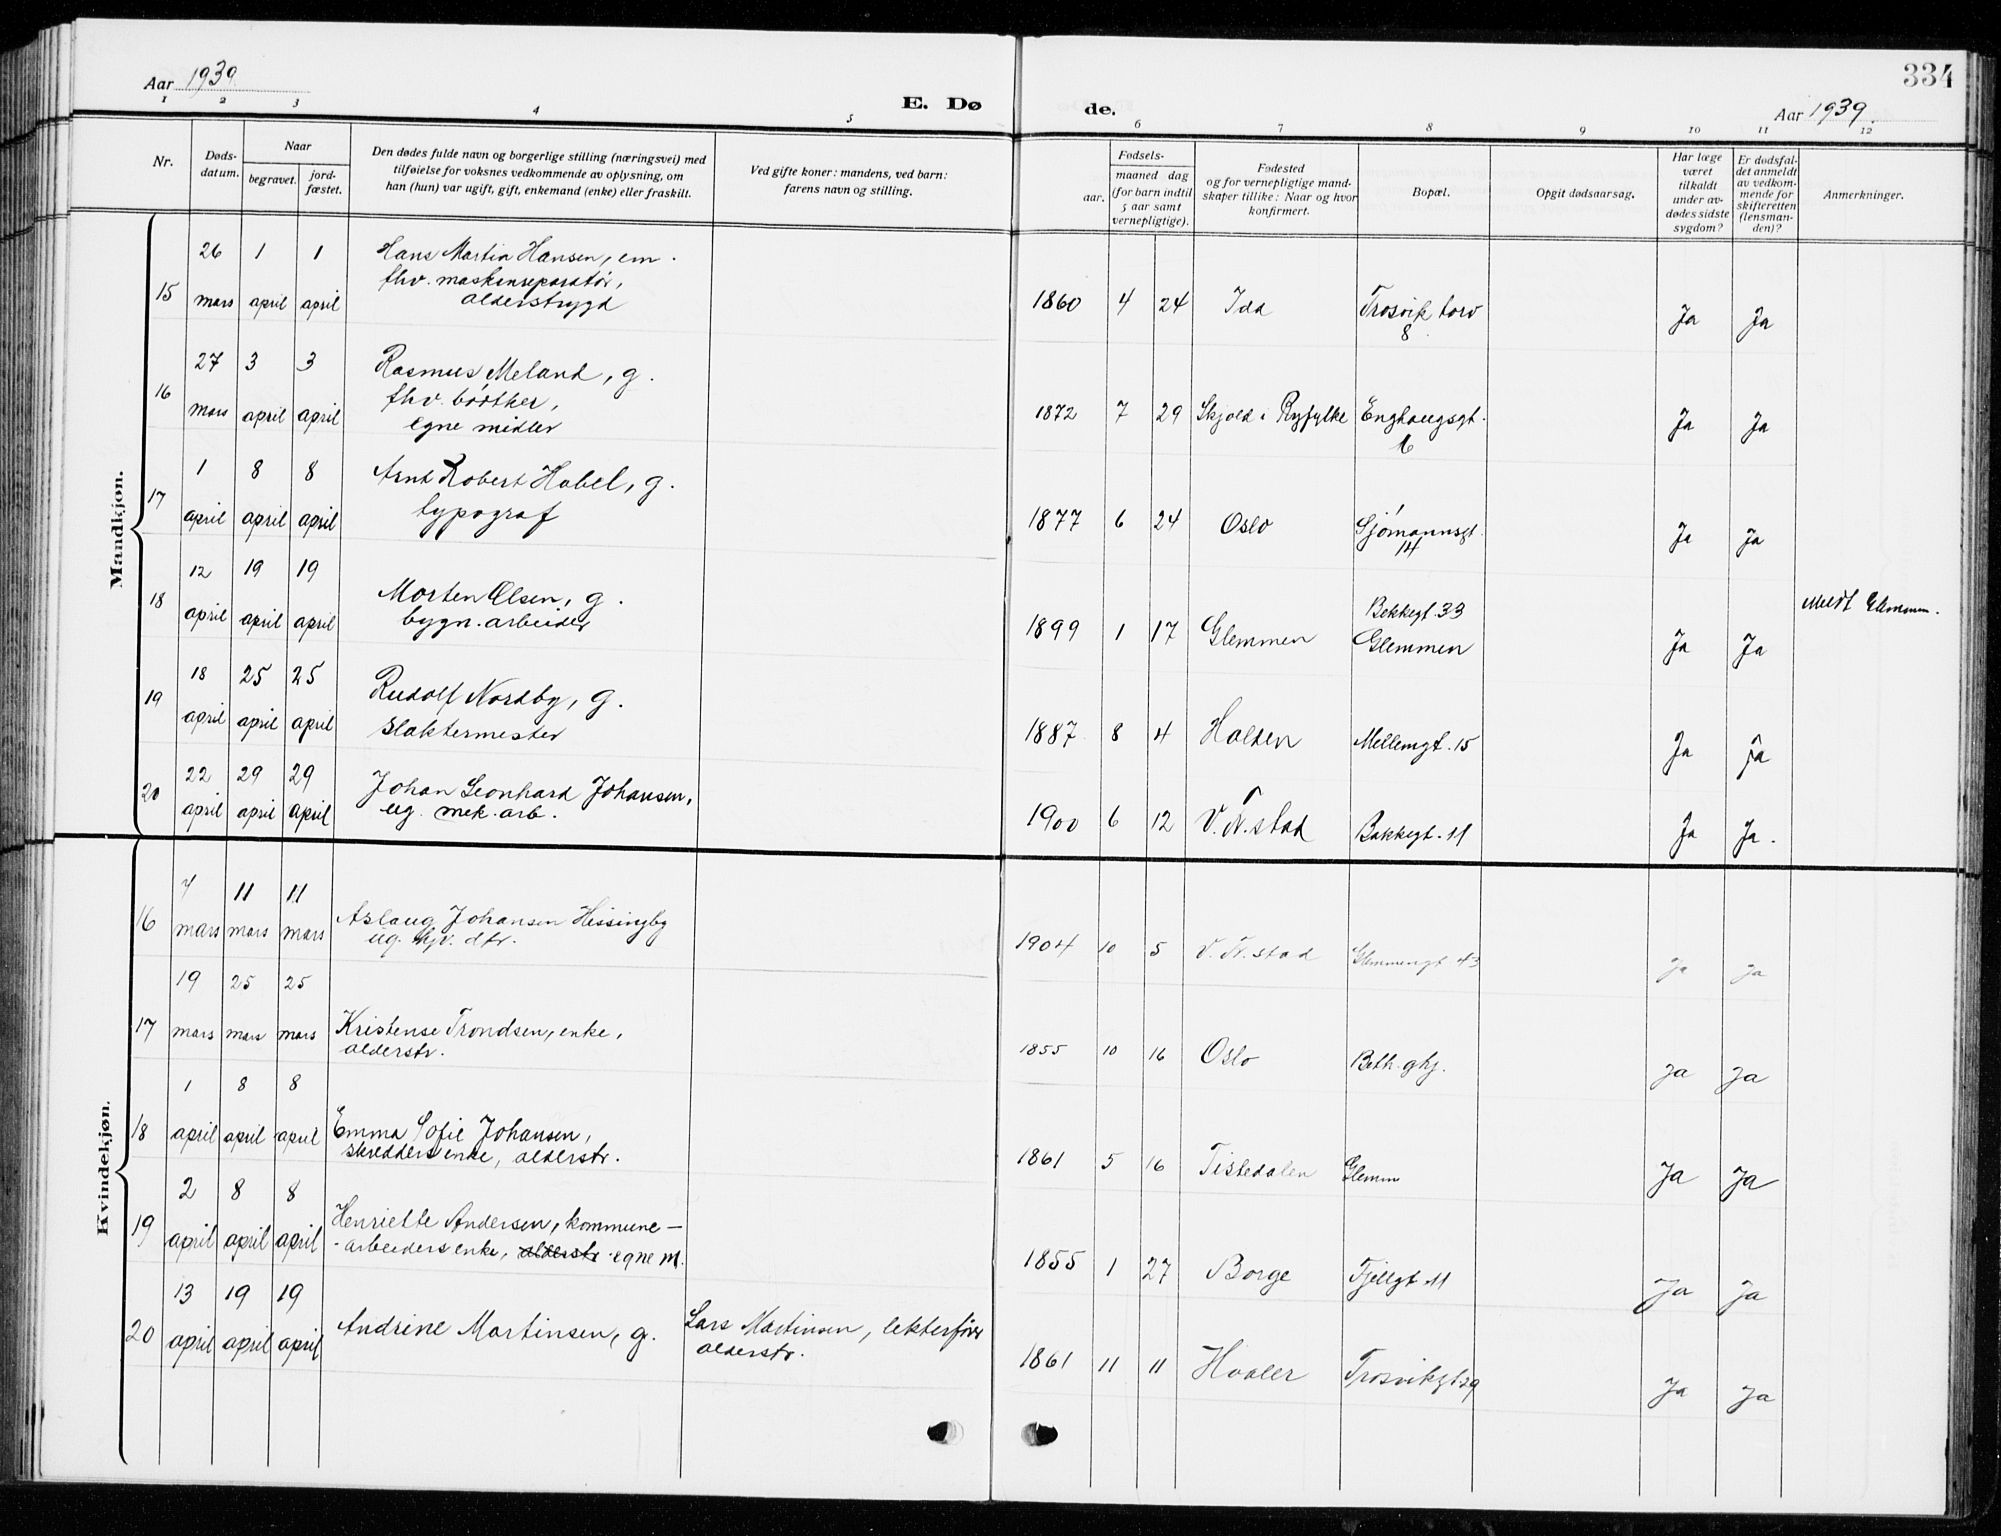 Aar 1939
334
E. Dø de.
Aar 1939.
1 2 3 4 5 6 7 8 9 10 11 12
Nr.
Døds-
datum.
Naar
begravet.
jord-
fæstet.
Den dødes fulde navn og borgerlige stilling (næringsvei) med
tilføielse for voksnes vedkommende av oplysning, om
han (hun) var ugift, gift, enkemand (enke) eller fraskilt.
Ved gifte koner: mandens, ved barn:
farens navn og stilling.
Fødsels-
aar.
maaned dag
(for barn indtil
5 aar samt
vernepligtige).
Fødested
og for vernepligtige mand-
skaper tillike: Naar og hvor
konfirmert.
Bopæl.
Opgit dødsaarsag.
Har læge
været
tilkaldt
under av-
dødes sidste
sygdom?
Er dødsfal-
det anmeldt
av vedkom-
mende for
skifteretten
(lensman-
den)?
Anmerkninger.
Mandkjøn.
15 26 mars 1 april 1 april
Hans Martin Hansen, em.
fhv. maskinreparatør,
alderstrygd
1860 4 24 Ida Trosvik torv
8
Ja Ja
16 27 mars 3 april 3 april
Rasmus Meland, g.
fhv. bødtker,
egne midler
1872 7 29 Skjold i Ryfylke Enghaugsgt.
Ja Ja
17 1 april 8 april 8 april
Arnt Robert Habel, g.
typograf
1877 6 24 Oslo Sjømannsgt.
14
Ja Ja
18 12 april 19 april 19 april
Morten Olsen, g.
bygn.arbeider
1899 1 17 Glemmen Bekkegt 33
Glemmen
Ja Ja
Meldt Glemmen.
19 18 april 25 april 25 april
Rudolf Nordby, g.
slaktermester
1887 8 4 Halden Mellemgt. 15
Ja Ja
20 22 april 29 april 29 april
Johan Leonhard Johansen,
ug. mek. arb.
1900 6 12 V. Fr.stad Bakkegt. 11
Ja Ja.
Kvindekjøn.
16 4 mars 11 mars 11 mars
Aslaug Johansen Hissingby
ug. hjv. dtr.
1904 10 5 V. Fr.stad Glemmengt 43
Ja Ja
17 19 mars 25 mars 25 mars
Kristense Trondsen, enke,
alderstr.
1855 10 16 Oslo Beth. ghj.
Ja Ja
18 1 april 8 april 8 april
Emma Sofie Johansen,
skredders enke, alderstr.
1861 5 16 Tistedalen Glemm
Ja Ja
19 2 april 8 april 8 april
Henriette Andersen, kommune-
-arbeiders enke, alderstr. egne m.
1855 1 27 Borge Fjellgt 11
Ja Ja
20 13 april 19 april 19 april
Andrine Martinsen, g.
Lars Martinsen, lekterfører
alderstr.
1861 11 11 Hvaler Trosvikgt 29
Ja Ja